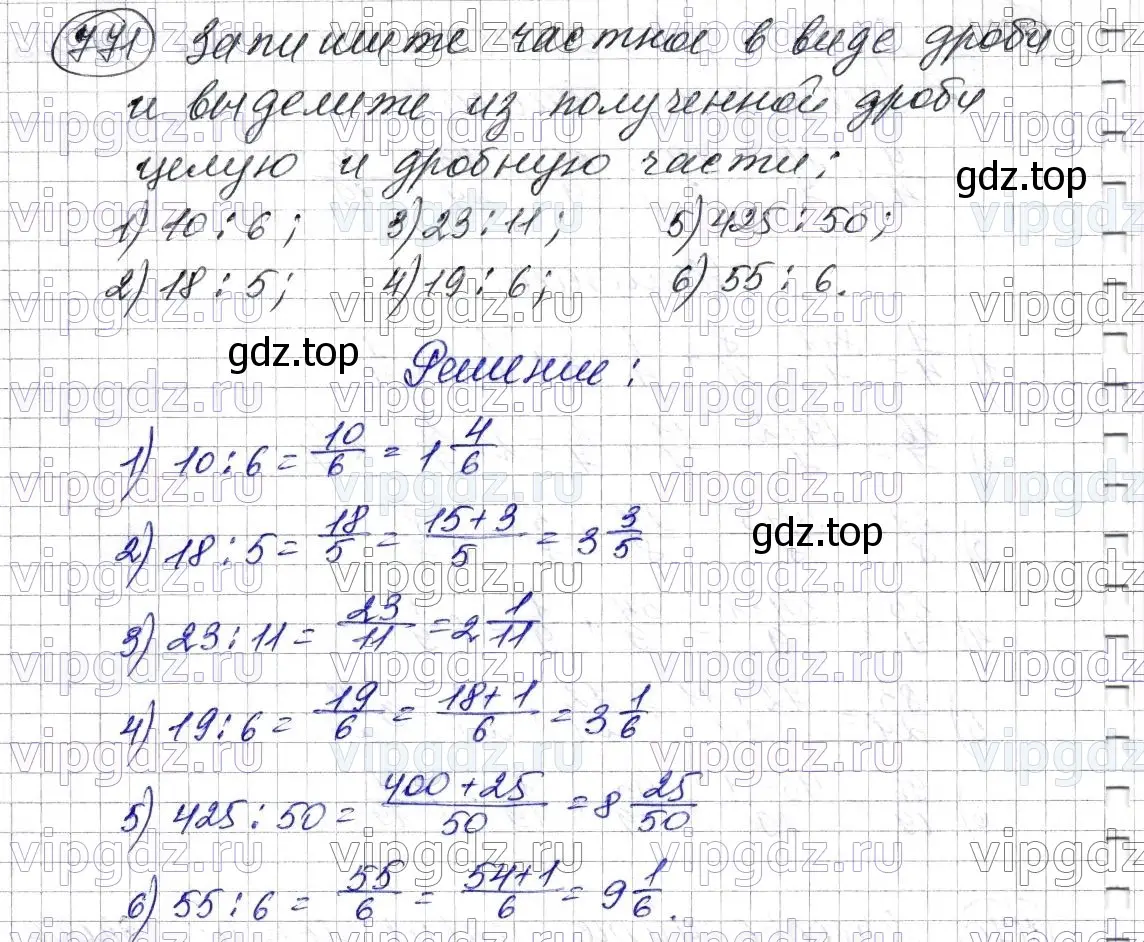 771 Запишите частное в виде дроби
и выделите из полученной дроби
целую и дробную части:
gdz.top
1) 10 : 6; 3) 23 : 11; 5) 425 : 50;
2) 18 : 5; 4) 19 : 6; 6) 55 : 6.
gdz.top
Решение:
1) 10 : 6 = 10/6 = 1 4/6
2) 18 : 5 = 18/5 = 15+3/5 = 3 3/5
gdz.top
3) 23 : 11 = 23/11 = 2 1/11
4) 19 : 6 = 19/6 = 18+1/6 = 3 1/6
5) 425 : 50 = 400+25/50 = 8 25/50
6) 55 : 6 = 55/6 = 54+1/6 = 9 1/6.
vipgdz.ru